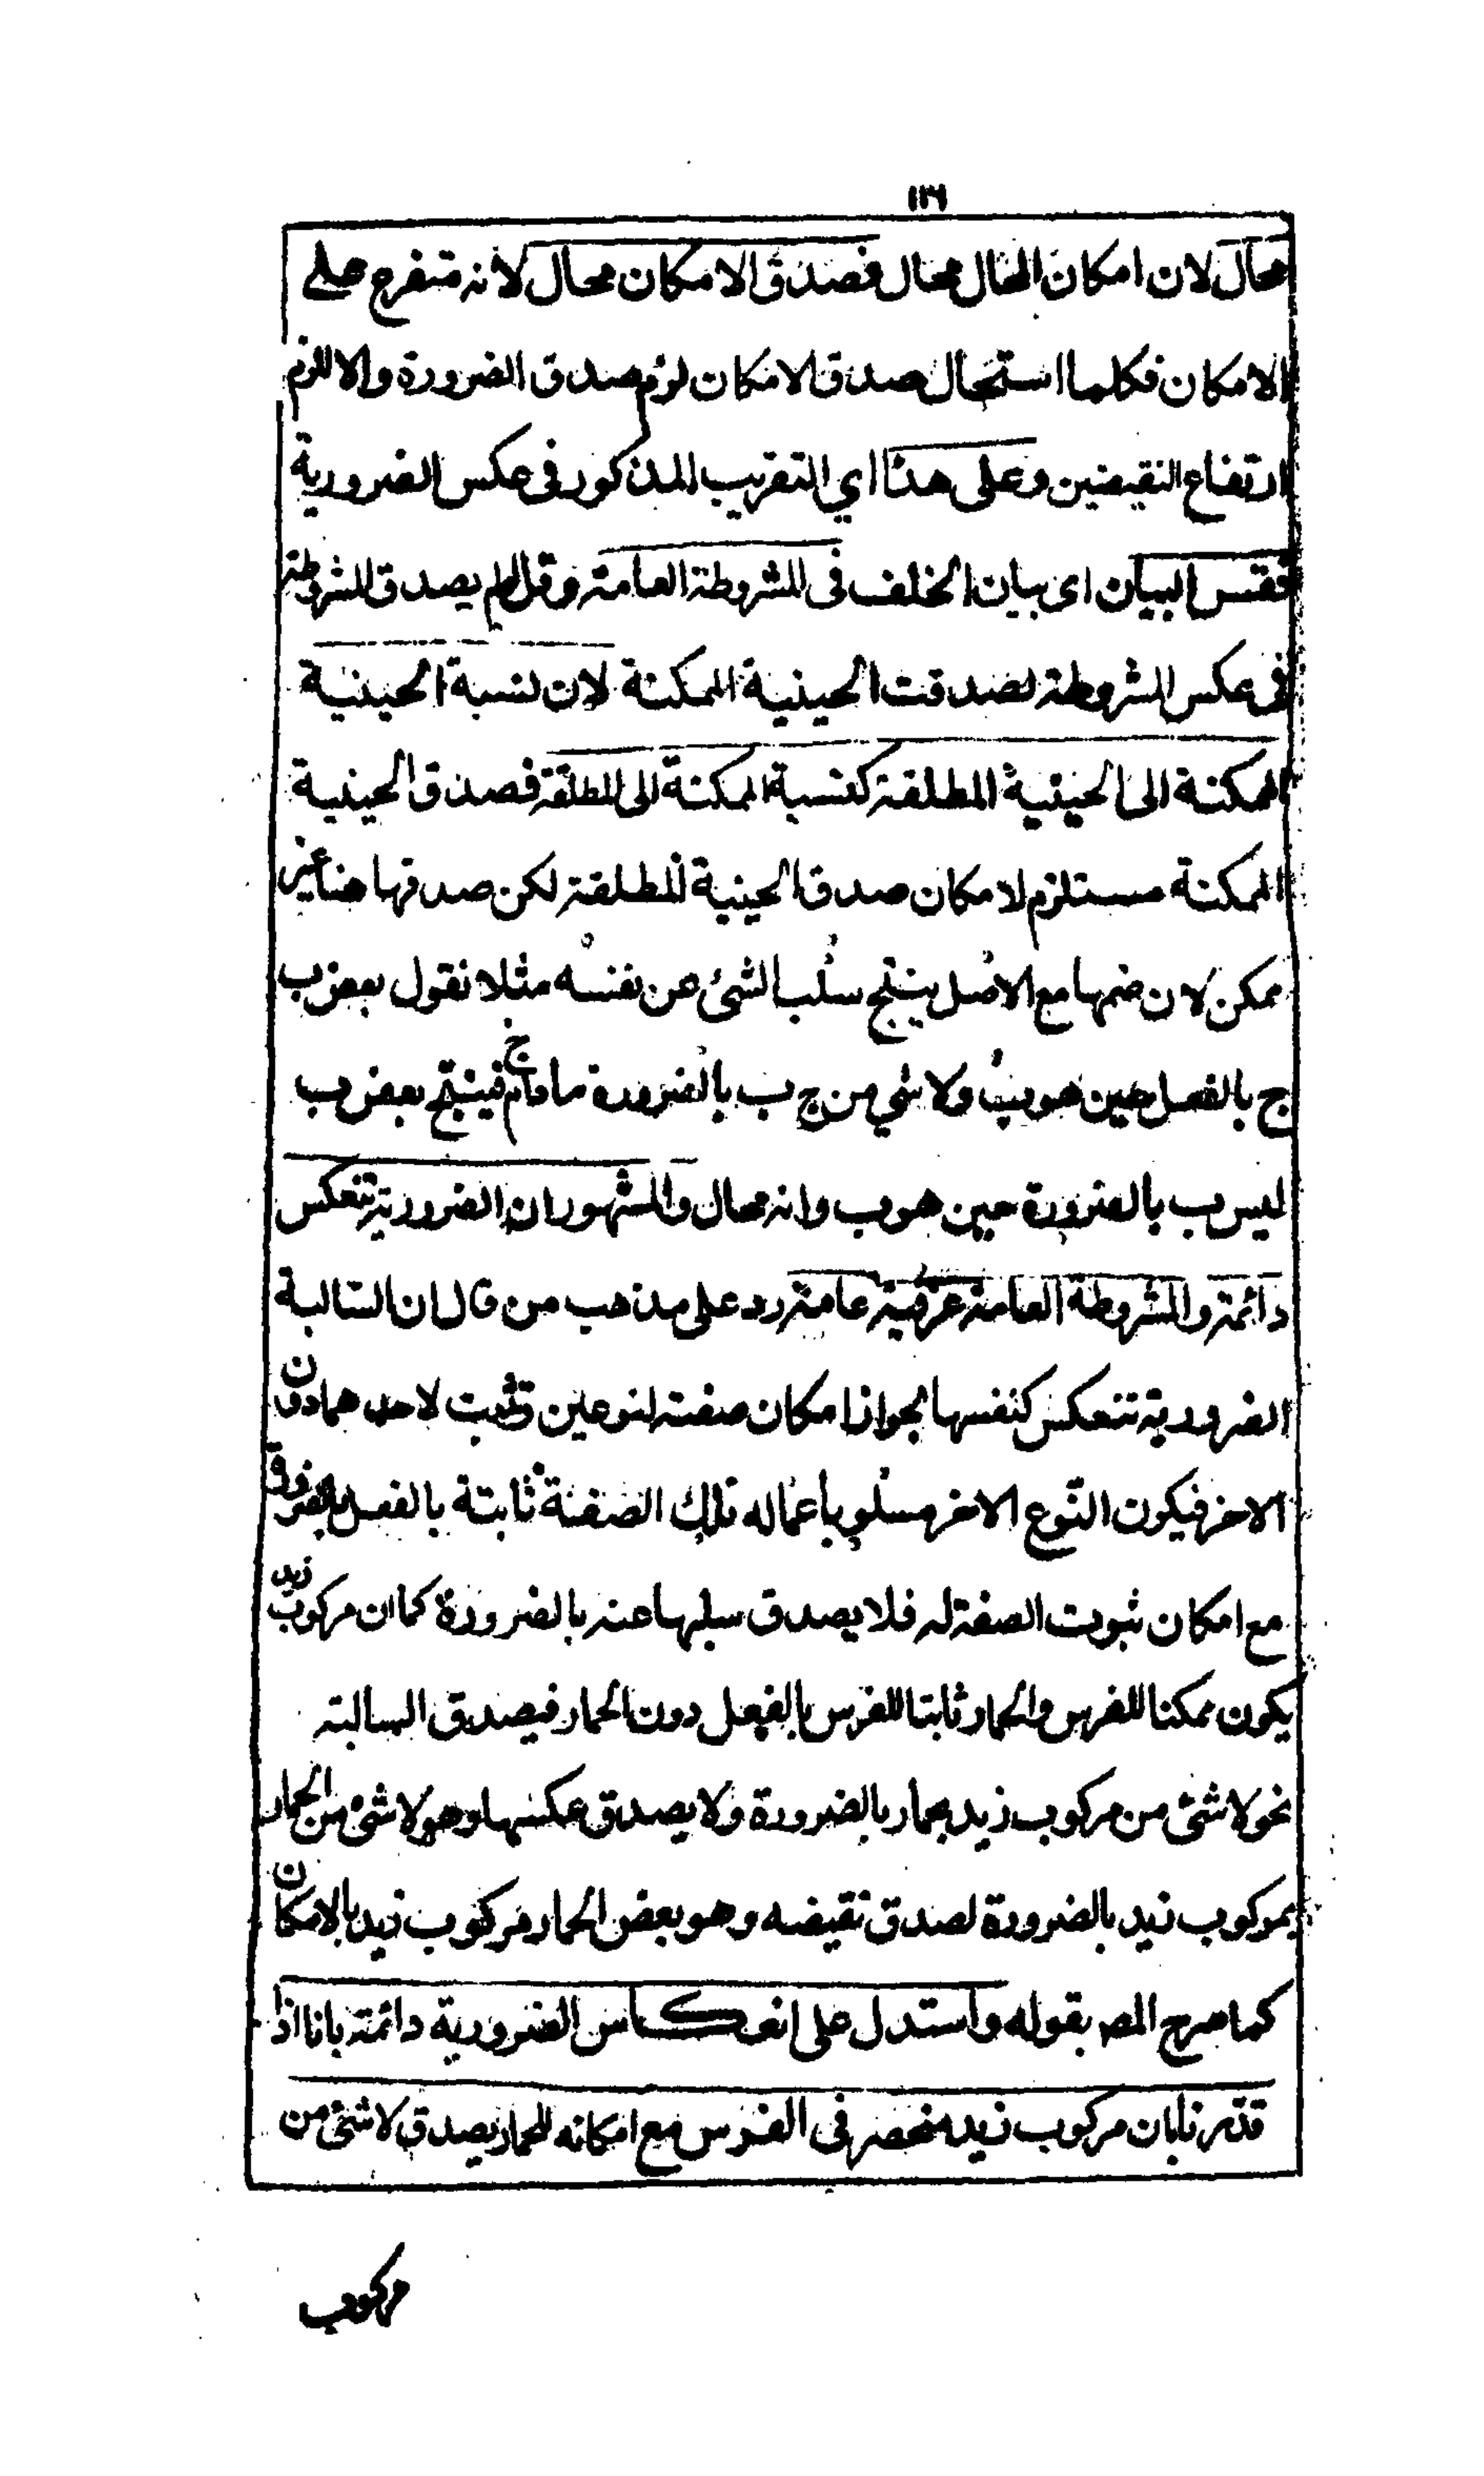 ١١٦
محال لان امكان المحال محال فصدق الامكان محال لانه متفرع على
الامكان فكلما استحال صدق الامكان لزم صدق الضرورة والا للزم
ارتفاع النقيضين وعلى هذا اي التقريب المذكور فى عكس الضرورية
فقس البيان اى بيان الخلف فى المشروطة العامة وقل لو لم يصدق المشروطة
فى عكس المشروطة لصدقت الحينية الممكنة لان نسبة الحينية
الممكنة الى الحينية المطلقة كنسبة الممكنة الى المطلقة فصدق الحينية
الممكنة مستلزم لامكان صدق الحينية المطلقة لكن صدقها هنا غير
ممكن لان ضمها مع الاصل ينتج سلب الشئ عن نفسه مثلا نقول بعض ب
ج بالفعل حين هو ب ولا شي من ج ب بالضرورة ما دام ج فينتج بعض ب
ليس ب بالضرورة حين هو ب وانه محال والمشهور ان الضرورية تنعكس
دائمة والمشروطة العامة عرفية عامة رد على مذهب من قال ان السالبة
الضرورية تنعكس كنفسها لجواز امكان صفة لنوعين وتثبت لاحدهما دون
الاخر فيكون النوع الاخر مسلوبا عما له تلك الصفة ثابتة بالفعل بالضرورة
مع امكان ثبوت الصفة له فلا يصدق سلبها عنه بالضرورة كما ان مركوب زيد
يكون ممكنا للفرس والحمار ثابتا للفرس بالفعل دون الحمار فيصدق السالبة
نحو لا شئ من مركوب زيد بحمار بالضرورة ولا يصدق عكسها وهو لا شئ من الحمار
بمركوب زيد بالضرورة لصدق نقيضه وهو بعض الحمار مركوب زيد بالامكان
كما صرح المصـ بقوله واستدل على انعكاس الضرورية دائمة بانا اذا
قدرنا بان مركوب زيد منحصر فى الفرس مع امكانه للحمار يصدق لا شئ من
مركوب